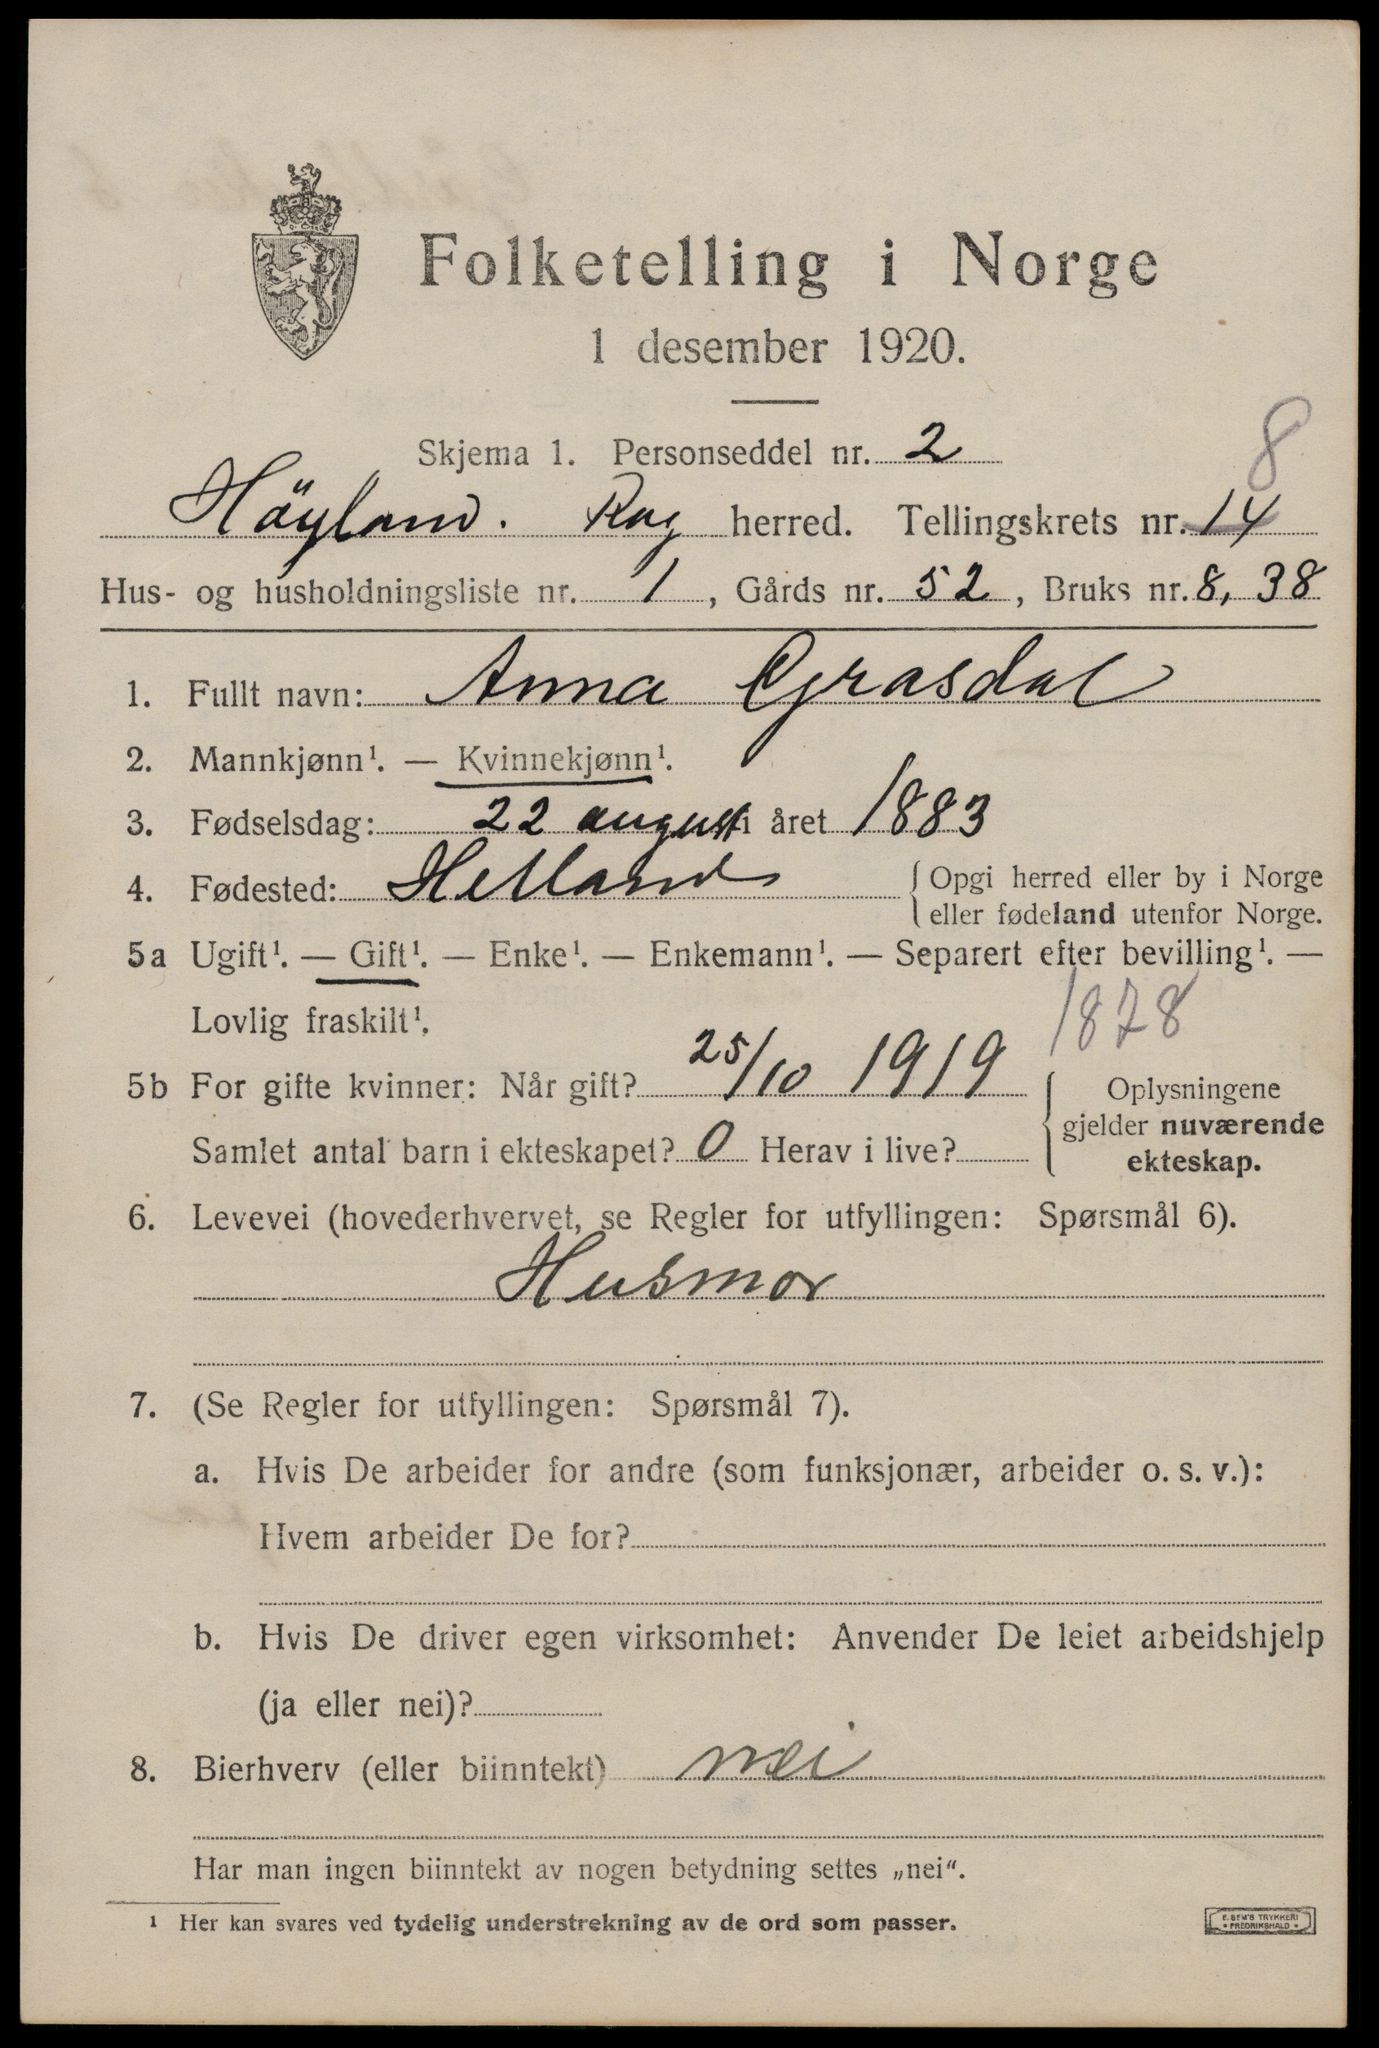 Folketelling i Norge
1 desember 1920.
Skjema 1. Personseddel nr. 2
8
Höyland. Rog herred. Tellingskrets nr. 14
Hus- og husholdningsliste nr. 1, Gårds nr. 52, Bruks nr. 8, 38
1. Fullt navn: Anna Grasdal
2. Mannkjønn¹. — Kvinnekjønn¹.
3. Fødselsdag: 22 august i året 1883
4. Fødested: Helland { Opgi herred eller by i Norge
eller fødeland utenfor Norge.
5a Ugift¹. — Gift¹. — Enke¹. — Enkemann¹. — Separert efter bevilling¹. —
Lovlig fraskilt¹.
1878
5b For gifte kvinner: Når gift? 25/10 1919 { Oplysningene
gjelder nuværende
Samlet antal barn i ekteskapet? 0 Herav i live?
ekteskap.
6. Levevei (hovederhvervet, se Regler for utfyllingen: Spørsmål 6).
Husmor
7. (Se Regler for utfyllingen: Spørsmål 7).
a. Hvis De arbeider for andre (som funksjonær, arbeider o. s. v.):
Hvem arbeider De for?
b. Hvis De driver egen virksomhet: Anvender De leiet arbeidshjelp
(ja eller nei)?
8. Bierhverv (eller biinntekt) nei
Har man ingen biinntekt av nogen betydning settes „nei“.
¹ Her kan svares ved tydelig understrekning av de ord som passer.
E. SEM'S TRYKKERI
* FREDRIKSHALD *